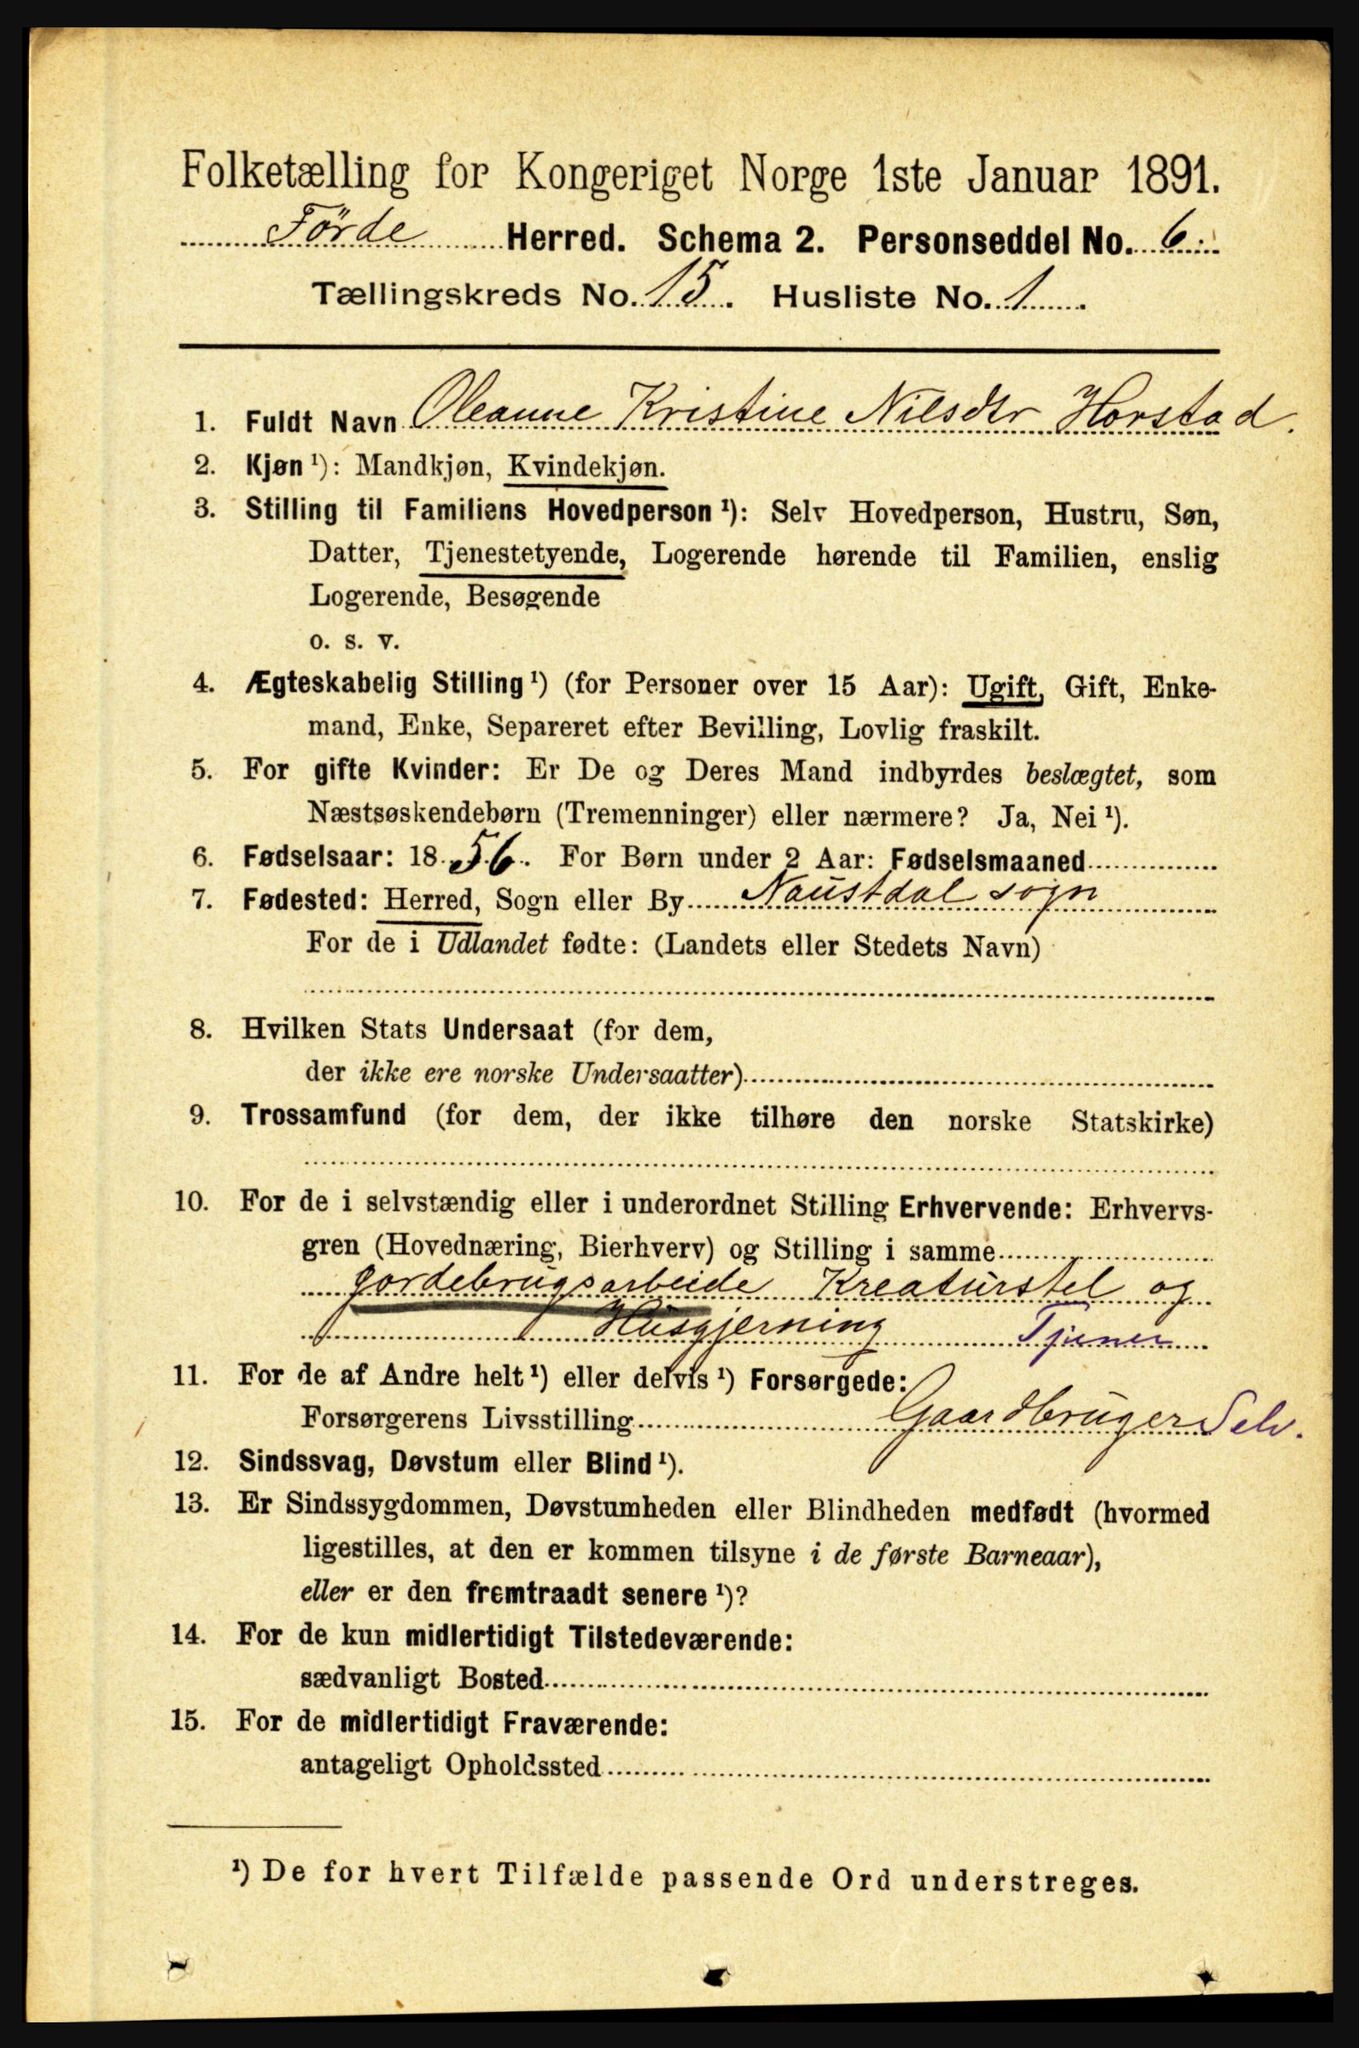 Folketælling for Kongeriget Norge 1ste Januar 1891.
Förde Herred. Schema 2. Personseddel No. 6.
Tællingskreds No. 15. Husliste No. 1.
1. Fuldt Navn Oleanne Kristine Nilsdtr Horstad.
2. Kjøn ¹): Mandkjøn, Kvindekjøn.
3. Stilling til Familiens Hovedperson ¹): Selv Hovedperson, Hustru, Søn,
Datter, Tjenestetyende, Logerende hørende til Familien, enslig
Logerende, Besøgende
o. s. v.
4. Ægteskabelig Stilling ¹) (for Personer over 15 Aar): Ugift, Gift, Enke-
mand, Enke, Separeret efter Bevilling, Lovlig fraskilt.
5. For gifte Kvinder: Er De og Deres Mand indbyrdes beslægtet, som
Næstsøskendebørn (Tremenninger) eller nærmere? Ja, Nei ¹).
6. Fødselsaar: 1856. For Børn under 2 Aar: Fødselsmaaned
7. Fødested: Herred, Sogn eller By Naustdal sogn
For de i Udlandet fødte: (Landets eller Stedets Navn)
8. Hvilken Stats Undersaat (for dem,
der ikke ere norske Undersaatter)
9. Trossamfund (for dem, der ikke tilhøre den norske Statskirke)
10. For de i selvstændig eller i underordnet Stilling Erhvervende: Erhvervs-
gren (Hovednæring, Bierhverv) og Stilling i samme
gordebrugsarbeide Kreaturstel og
Husgjerning Tjener
11. For de af Andre helt ¹) eller delvis ¹) Forsørgede:
Forsørgerens Livsstilling Gaardbruger Selv.
12. Sindssvag, Døvstum eller Blind ¹).
13. Er Sindssygdommen, Døvstumheden eller Blindheden medfødt (hvormed
ligestilles, at den er kommen tilsyne i de første Barneaar),
eller er den fremtraadt senere ¹)?
14. For de kun midlertidigt Tilstedeværende:
sædvanligt Bosted
15. For de midlertidigt Fraværende:
antageligt Opholdssted
¹) De for hvert Tilfælde passende Ord understreges.